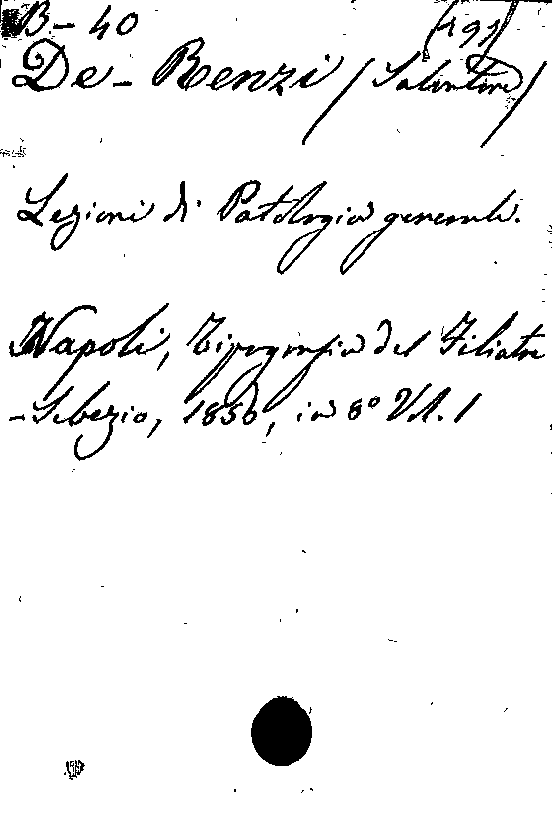 B-40 (191)
De-Renzi (Salvatore)
Lezioni di Patologia generale.
Napoli, Tipografia del Filiatre
-Sebezio, 1856, in 8° Vol. 1